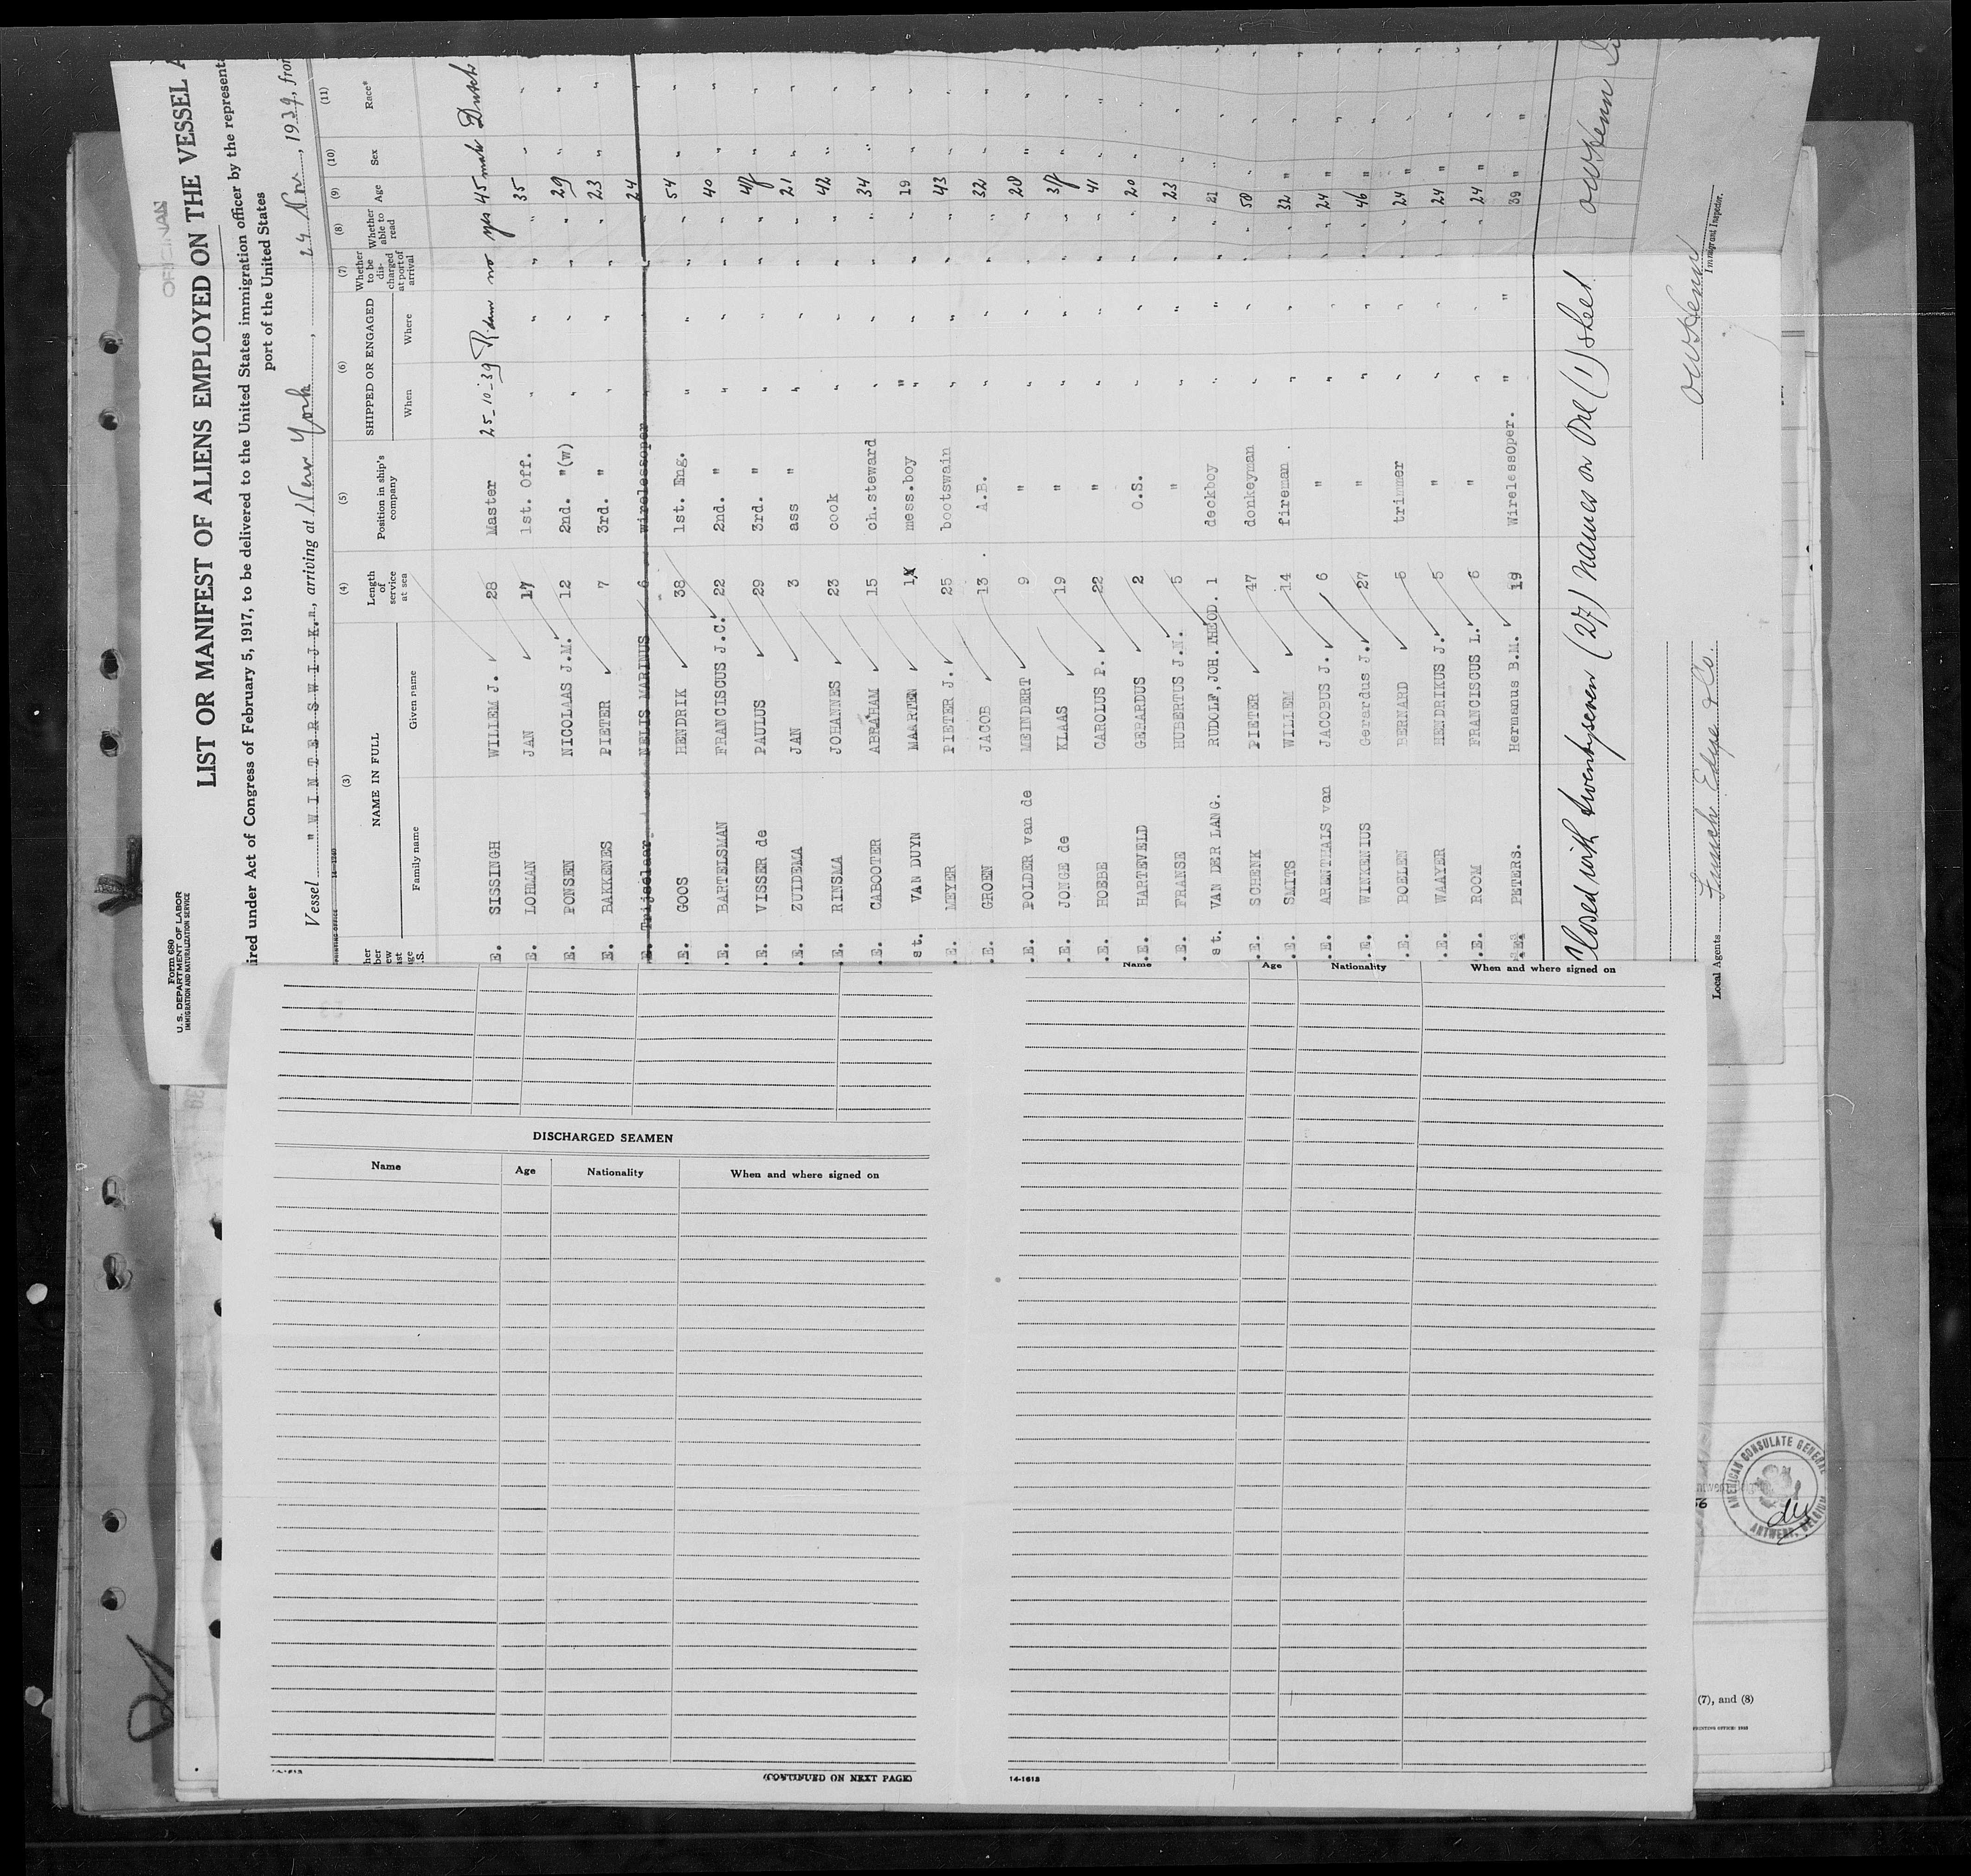 ORIGINAL
Form 680
U. S. DEPARTMENT OF LABOR
IMMIGRATION AND NATURALIZATION SERVICE
LIST OR MANIFEST OF ALIENS EMPLOYED ON THE VESSEL A
ired under Act of Congress of February 5, 1917, to be delivered to the United States immigration officer by the representa
port of the United States
Vessel "WINTERSWIJK.", arriving at New York, 24 Nov, 1939, from
14-1240
(3) (4) (5) (6) (7) (8) (9) (10) (11)
NAME IN FULL Length of service at sea Position in ship's company SHIPPED OR ENGAGED Whether to be discharged at port of arrival Whether able to read Age Sex Race*
Family name Given name When Where
E. SISSINGH WILLEM J. 28 Master 25-10-39 R'dam no yes 45 male Dutch
E. LOHMAN JAN 17 1st. Off. " " " " 35 " "
E. PONSEN NICOLAAS J.M. 12 2nd. "(w) " " " " 29 " "
E. BAKKENES PIETER 7 3rd. " " " " " 23 " "
E. Trijselaar NELIS MARINUS 6 wirelessoper 24
.E. GOOS HENDRIK 38 1st. Eng. " " " " 54 " "
.E. BARTELSMAN FRANCISCUS J.C. 22 2nd. " " " " " 40 " "
.E. VISSER de PAULUS 29 3rd. " " " " " 47 " "
.E. ZUIDEMA JAN 3 ass " " " " " 21 " "
.E. RINSMA JOHANNES 23 cook " " " " 42 " "
.E. CABOOTER ABRAHAM 15 ch.steward " " " " 34 " "
st. VAN DUYN MAARTEN 1 mess.boy " " " " 19 " "
.E. MEYER PIETER J. 25 bootswain " " " " 43 " "
.E. GROEN JACOB 13 A.B. " " " " 32 " "
.E. POLDER van de MEINDERT 9 " " " " " 28 " "
.E. JONGE de KLAAS 19 " " " " " 37 " "
.E. HOEBE CAROLUS P. 22 " " " " " 41 " "
.E. HARTEVELD GERARDUS 2 O.S. " " " " 20 " "
.E. FRANSE HUBERTUS J.N. 5 " " " " " 23 " "
st. VAN DER LANG. RUDOLF,JOH.THEOD. 1 deckboy " " " " 21 " "
.E. SCHENK PIETER 47 donkeyman " " " " 50 " "
.E. SMITS WILLEM 14 fireman. " " " " 32 " "
.E. ARENTHALS van JACOBUS J. 6 " " " " " 24 " "
.E. WINKENIUS Gerardus J. 27 " " " " " 46 " "
.E. BOELEN BERNARD 5 trimmer " " " " 24 " "
.E. WAAYER HENDRIKUS J. 5 " " " " " 24 " "
.E. ROOM FRANCISCUS L. 6 " " " " " 24 " "
PETERS. Hermanus B.M. 19 Wirelessoper. " " 39 " "
Closed with twentyseven (27) names on one (1) sheet
Local Agents Funch Edye & Co.
Immigrant Inspector.
DISCHARGED SEAMEN
Name Age Nationality When and where signed on
(CONTINUED ON NEXT PAGE)
Name Age Nationality When and where signed on
14-1613
AMERICAN CONSULATE GENERAL
ANTWERP, BELGIUM
(7), and (8)